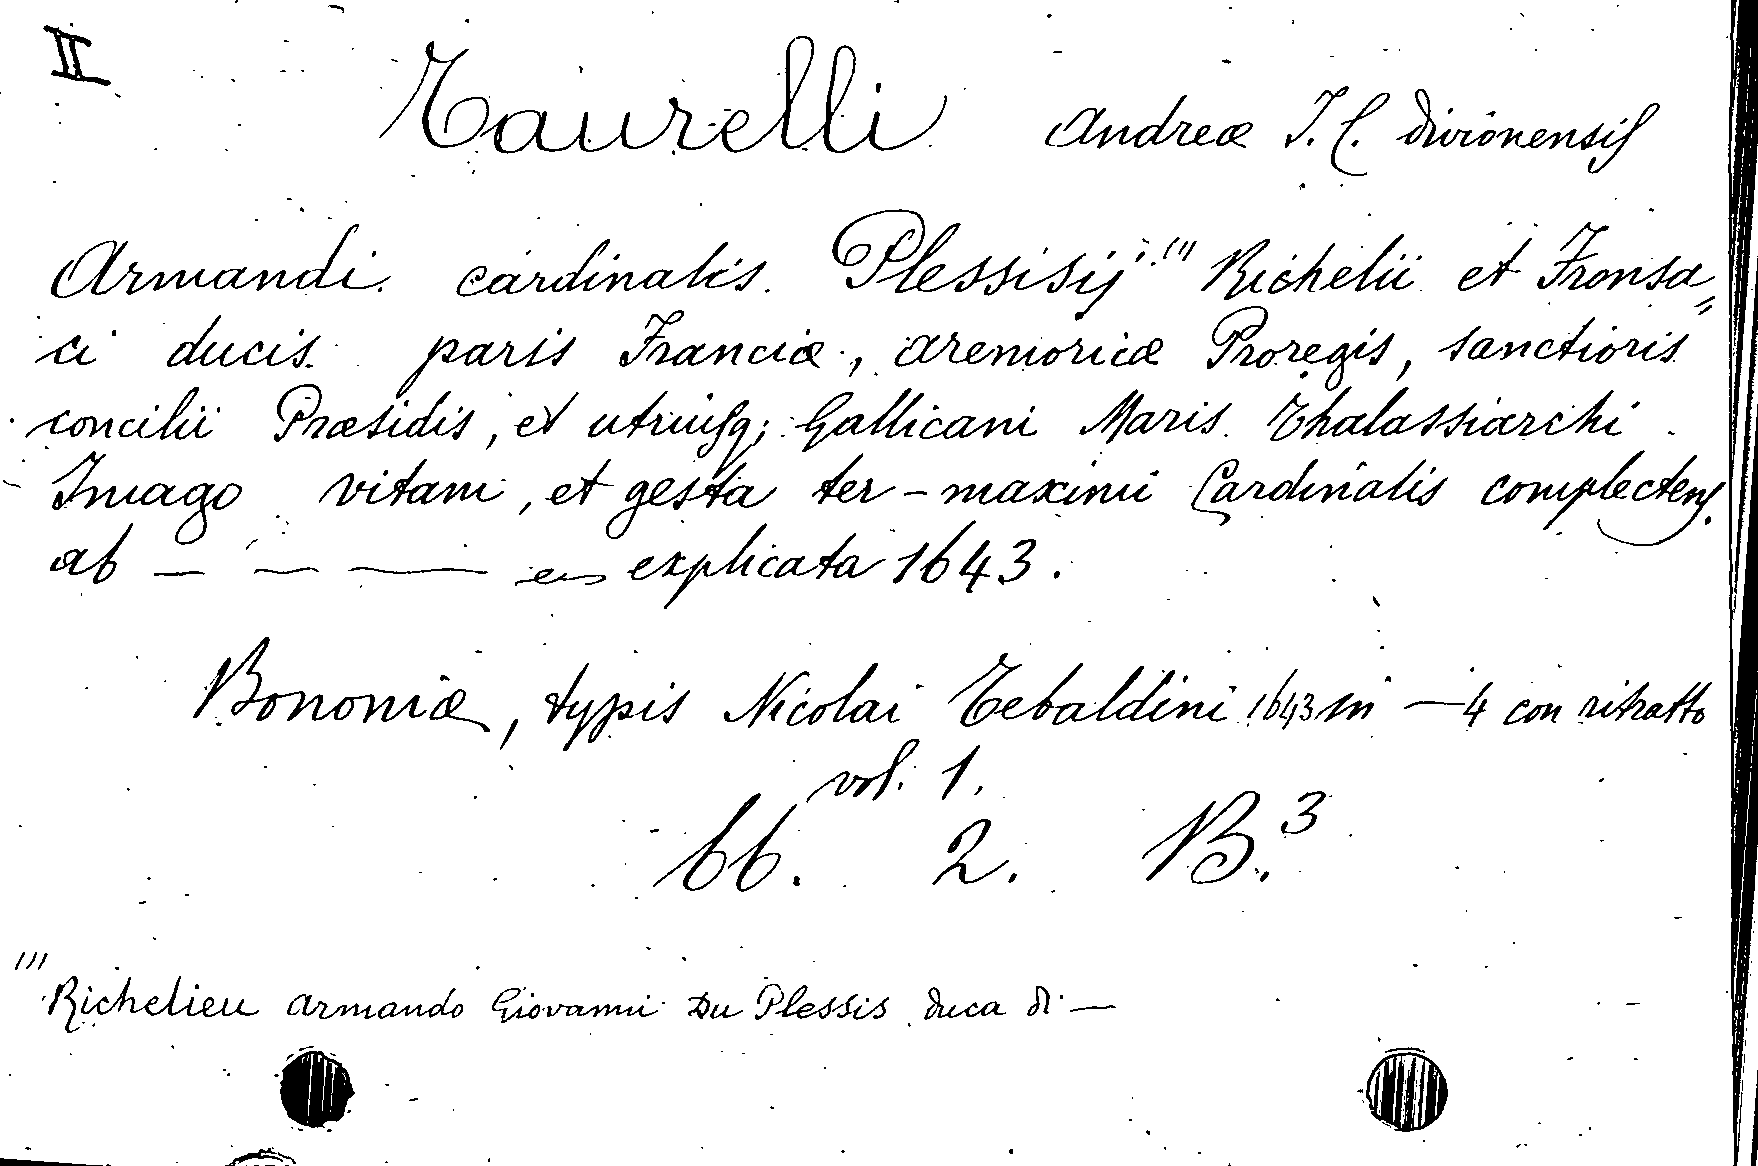 II
Taurelli Andreæ J. C. divionensis
Armandi cardinalis Plessisij (1) Richelii et Fronsa=
ci ducis paris Franciæ, aremoricæ Proregis, sanctioris
concilii Præsidis, et utriusq; Gallicani Maris Thalassiarchi
Imago vitam, et gesta ter-maximi Cardinalis complectens
ab — — — explicata 1643.
Bononiæ, typis Nicolai Tebaldini 1643 in —4 con ritratto
vol. 1.
bb. 2. B.3
(1)
Richelieu Armando Giovanni Du Plessis duca di —